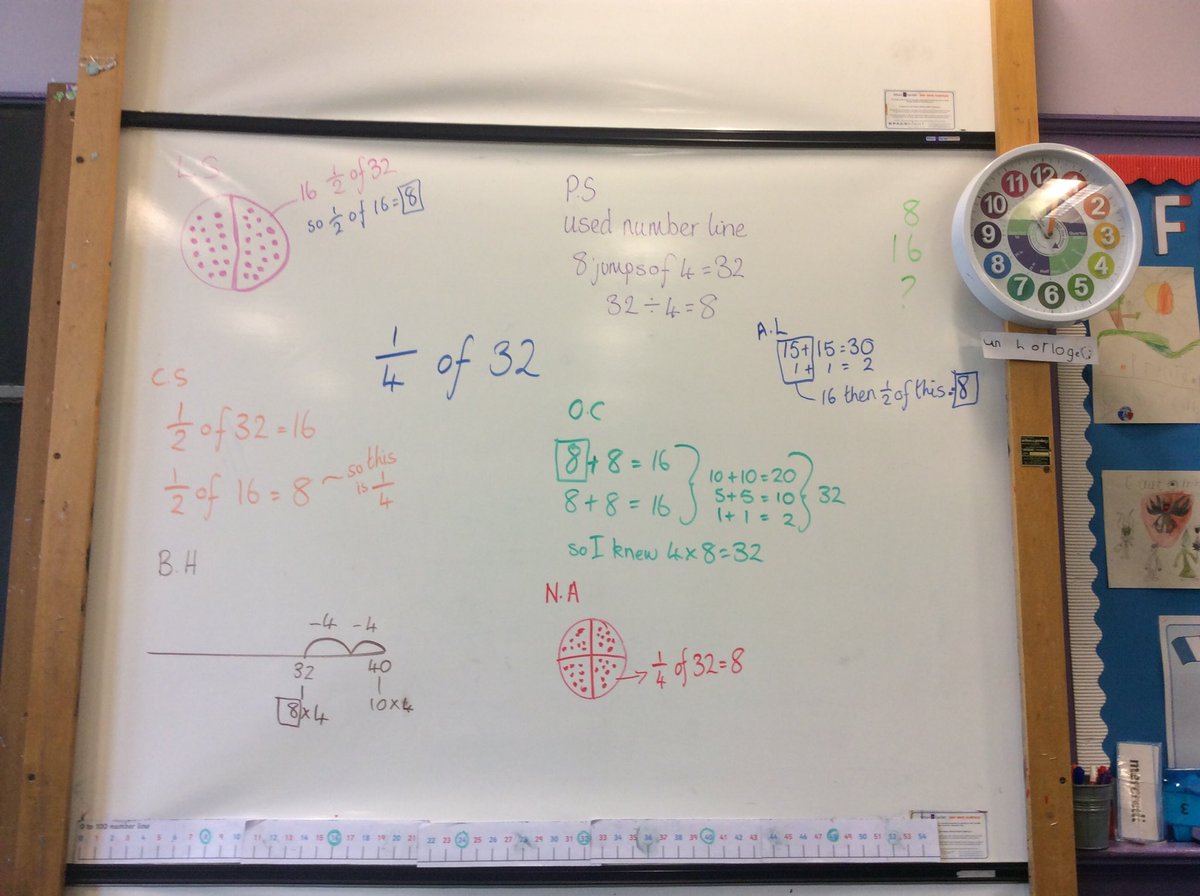 L.S
16 1/2 of 32
so 1/2 of 16 = 8
P.S
used number line
8 jumps of 4 = 32
32 ÷ 4 = 8
8
16
?
1/4 of 32
A.L
15 + 15 = 30
1 + 1 = 2
16 then 1/2 of this = 8
C.S
1/2 of 32 = 16
1/2 of 16 = 8 so this is 1/4
O.C
8 + 8 = 16
8 + 8 = 16
10 + 10 = 20
5 + 5 = 10
1 + 1 = 2
32
so I knew 4 x 8 = 32
B.H
-4 -4
32 40
8 x 4 10 x 4
N.A
1/4 of 32 = 8
11 12 2 3 4 5 6 7 8 9 10
un horloge
F
mercredi
0 to 100 number line
0 1 2 3 4 5 6 7 8 9 10 11 12 13 14 15 16 17 18 19 20 21 22 23 24 25 26 27 28 29 30 31 32 33 34 35 36 37 38 39 40 41 42 43 44 45 46 47 48 49 50 51 52 53 54